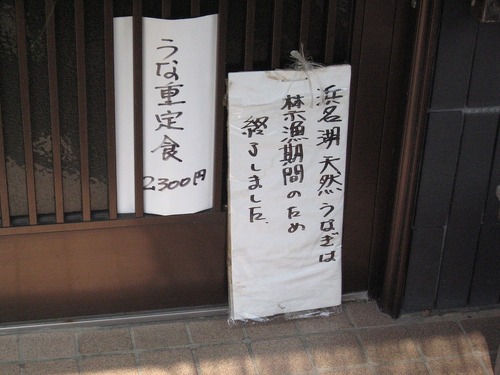 浜名湖天然うなぎは
禁漁期間のため
終了しました。
うな重定食
2300円